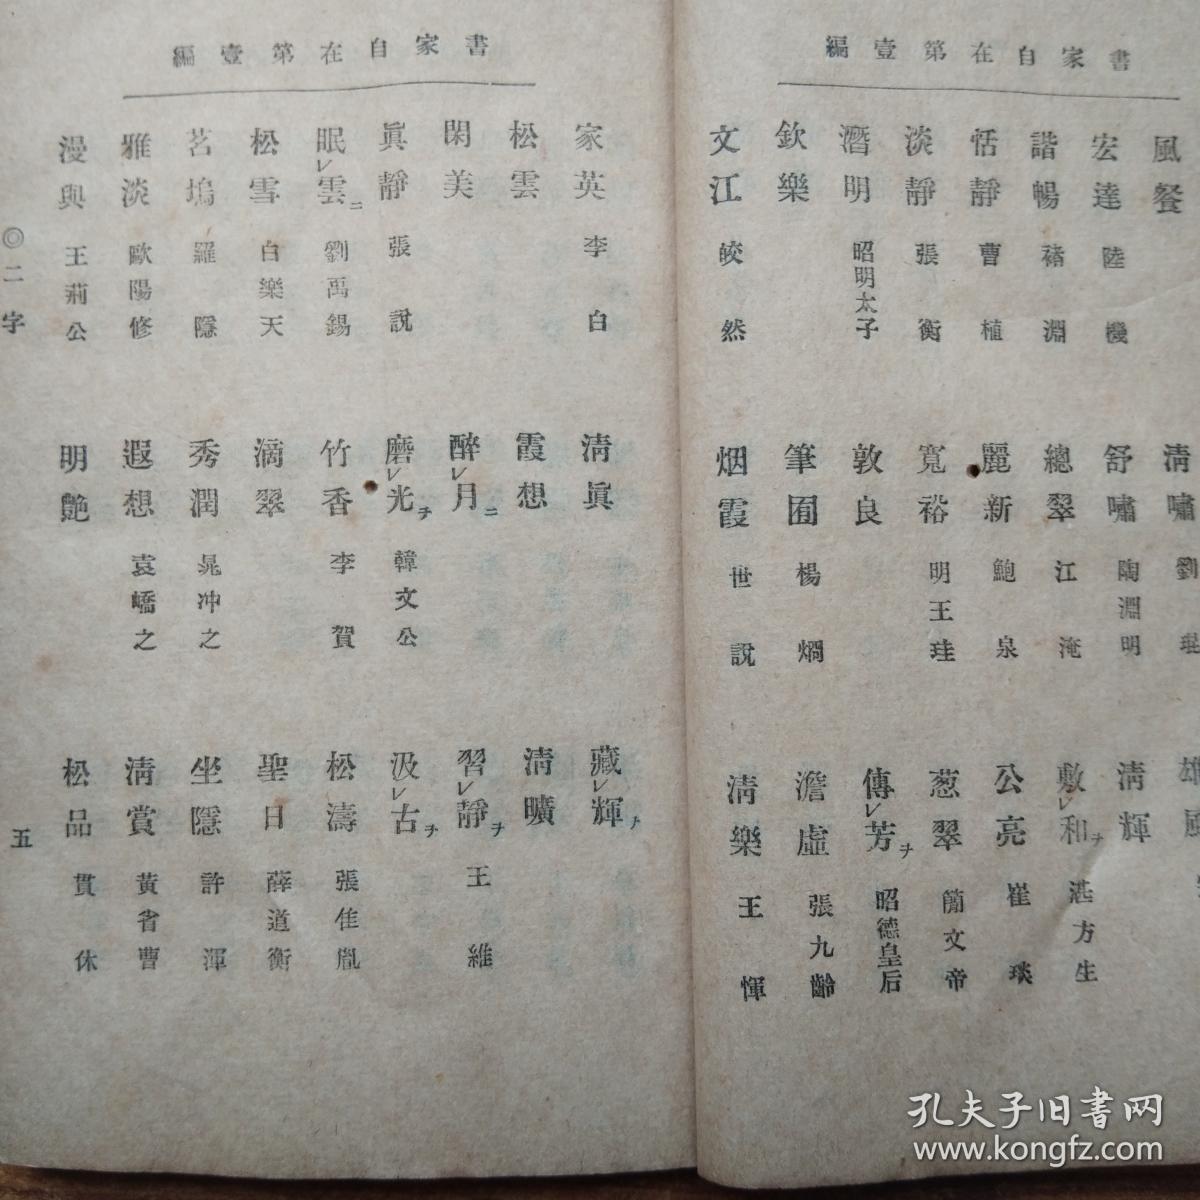 書家自在第壹編
風餐
宏達 陸機
諧暢 褚淵
恬靜 曹植
淡靜 張衡
潛明 昭明太子
欽樂
文江 皎然
清嘯 劉琨
舒嘯 陶淵明
總翠 江淹
麗新 鮑泉
寬裕 明王珪
敦良
筆囿 楊烱
烟霞 世說
雄風
清輝
敷レ和ヲ 湛方生
公亮 崔琰
葱翠 簡文帝
傳レ芳ヲ 昭德皇后
澹虛 張九齡
清樂 王惲
書家自在第壹編
家英 李白
松雲
閑美
眞靜 張說
眠レ雲ニ 劉禹錫
松雪 白樂天
茗塢 羅隱
雅淡 歐陽修
漫與 王荊公
清眞
霞想
醉レ月ニ
磨レ光ヲ 韓文公
竹香 李賀
滴翠
秀潤 晁冲之
遐想 袁嶠之
明艶
藏レ輝ヲ
清曠
習レ靜ヲ 王維
汲レ古ヲ
松濤 張佳胤
聖日 薛道衡
坐隱 許渾
清賞 黃省曹
松品 貫休
◎二字
五
孔夫子旧書网
www.kongfz.com